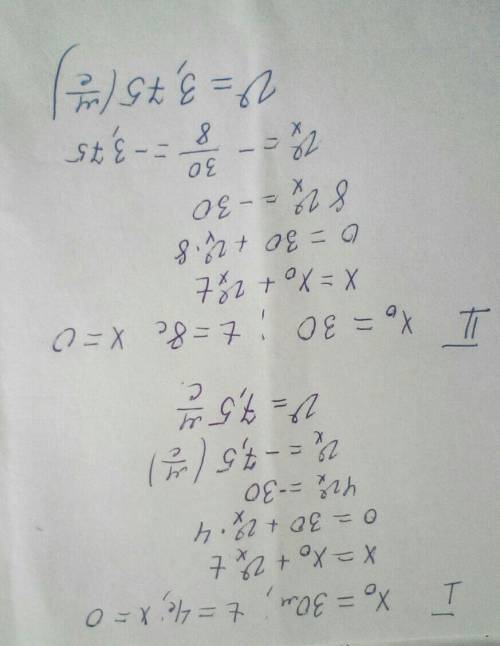 I x₀ = 30м; t = 4с; x = 0
x = x₀ + υₓ t
0 = 30 + υₓ · 4
4υₓ = -30
υₓ = -7,5 (м/с)
υ = 7,5 м/с
II x₀ = 30 ; t = 8с x = 0
x = x₀ + υₓ t
0 = 30 + υₓ · 8
8 υₓ = -30
υₓ = - 30/8 = -3,75
υ = 3,75 (м/с)